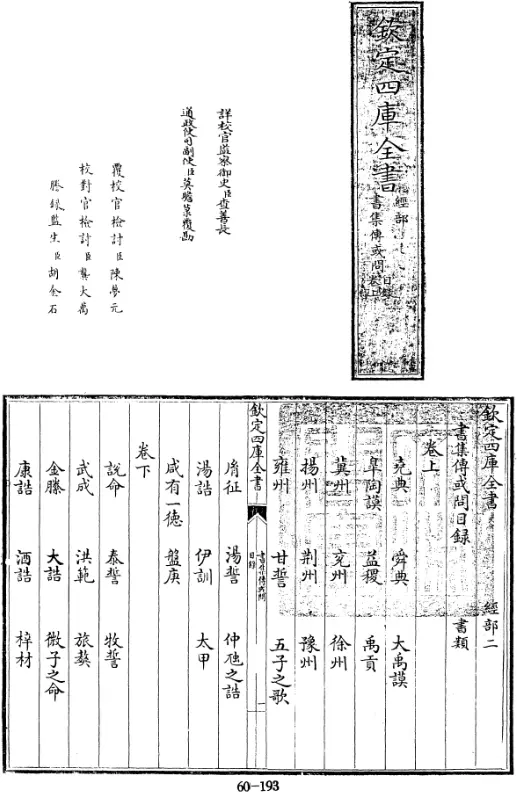 欽定四庫全書
經部
書集傳或問
目錄
卷上
詳校官監察御史臣曹善長
通政使司副使臣莫瞻菉覆勘
覆校官檢討臣陳夢元
校對官檢討臣龔大萬
謄錄監生臣胡金石
欽定四庫全書 經部二
書集傳或問目錄 書類
卷上
堯典 舜典 大禹謨
皐陶謨 益稷 禹貢
冀州 兗州 徐州
揚州 荆州 豫州
雍州 甘誓 五子之歌
欽定四庫全書
書集傳或問
目錄
一
胤征 湯誓 仲虺之誥
湯誥 伊訓 太甲
咸有一德 盤庚
卷下
說命 泰誓 牧誓
武成 洪範 旅獒
金縢 大誥 微子之命
康誥 酒誥 梓材
60-193